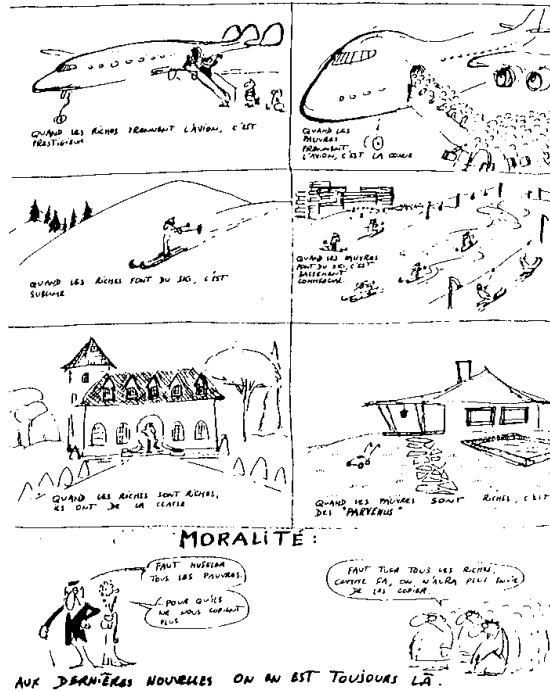 QUAND LES RICHES PRENNENT L'AVION, C'EST
PRESTIGIEUX
QUAND LES
PAUVRES
PRENNENT
L'AVION, C'EST LA COHUE
QUAND LES RICHES FONT DU SKI, C'EST
SUBLIME
QUAND LES PAUVRES
FONT DU SKI, C'EST
BASSEMENT
COMMERCIAL
QUAND LES RICHES SONT RICHES,
ILS ONT DE LA CLASSE
QUAND LES PAUVRES SONT RICHES, C'EST
DES "PARVENUS"
MORALITÉ :
FAUT MUSELER
TOUS LES PAUVRES.
..POUR QU'ILS
NE NOUS COPIENT
PLUS
FAUT TUER TOUS LES RICHES,
COMME ÇA, ON N'AURA PLUS ENVIE
DE LES COPIER.
AUX DERNIÈRES NOUVELLES ON EN EST TOUJOURS LÀ.